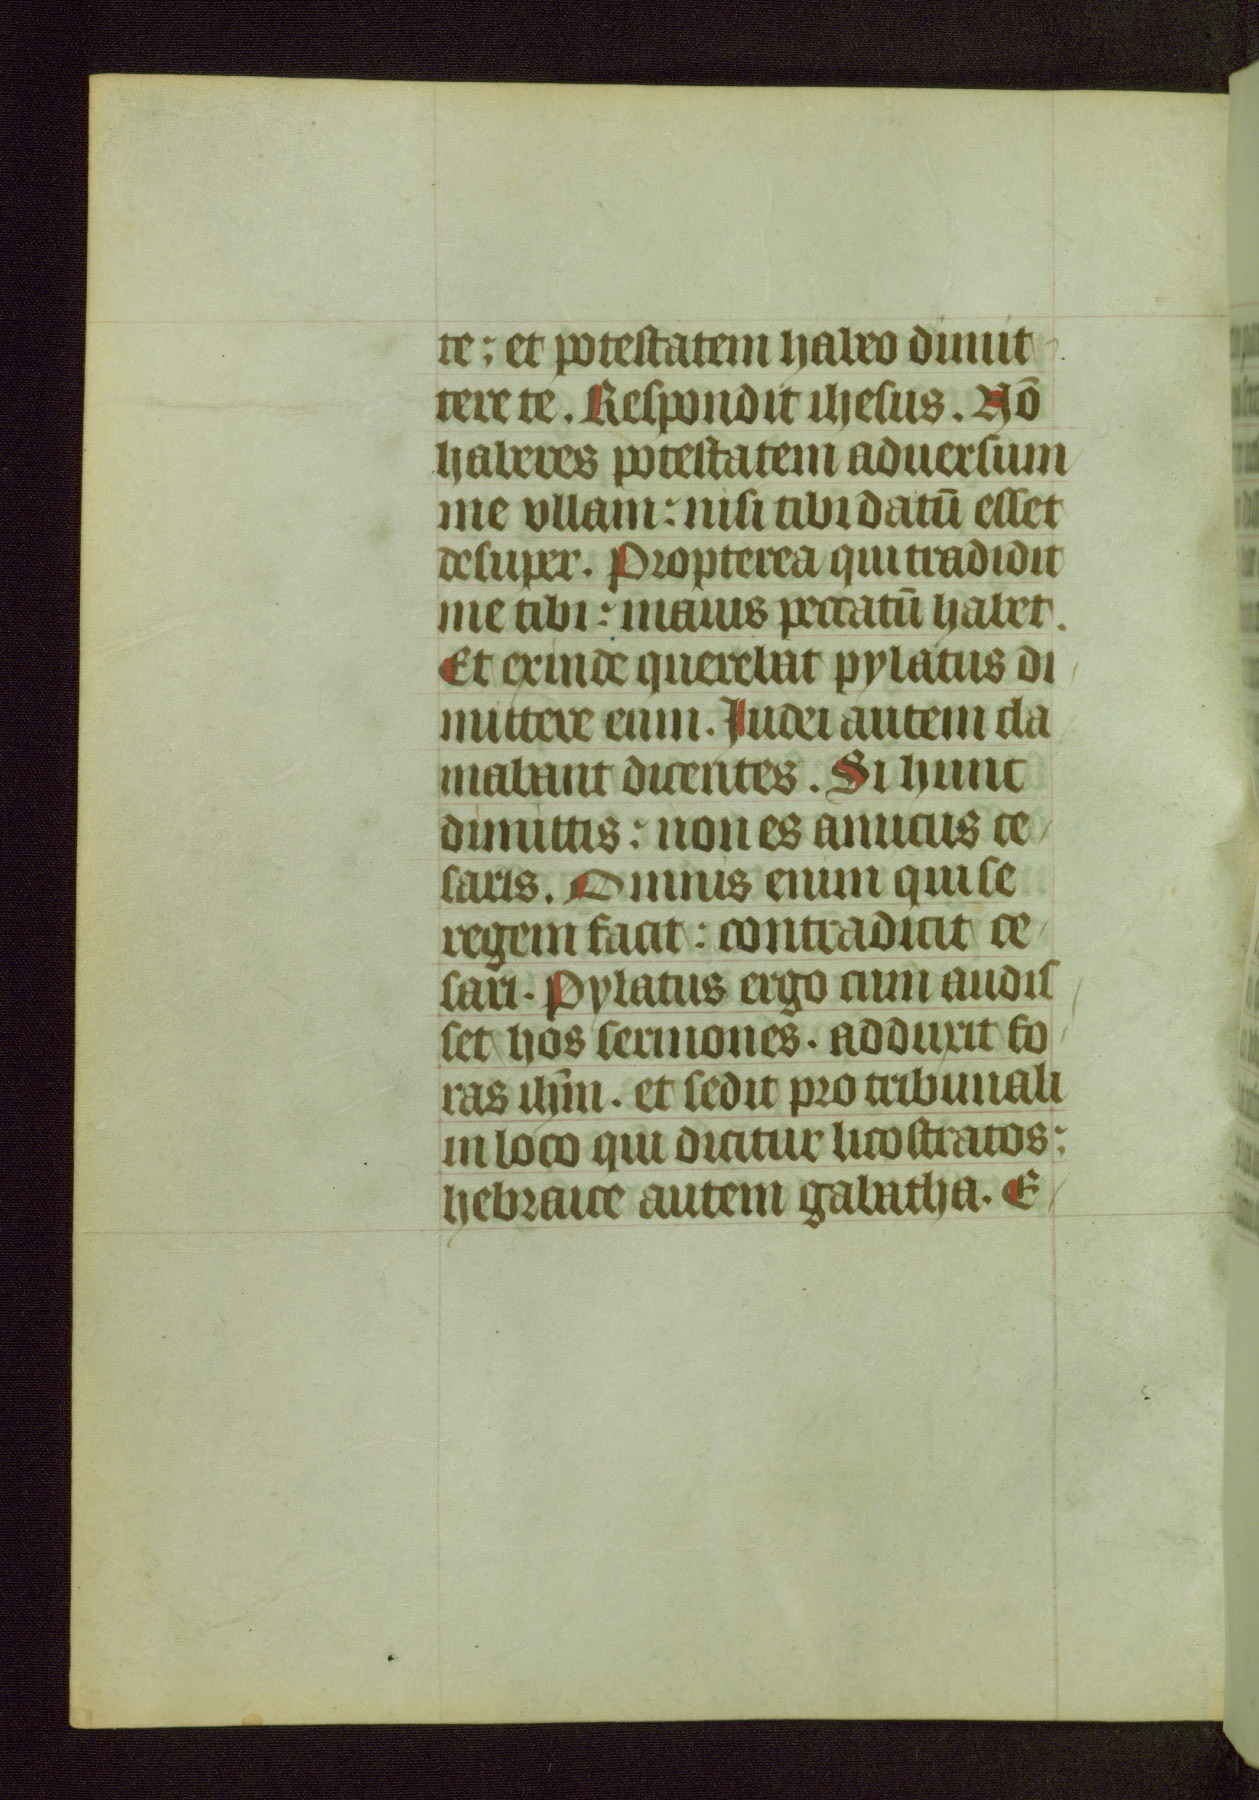 te : et potestatem habeo dimit
tere te . Respondit ihesus . Nō
haberes potestatem aduersum
me vllam : nisi tibi datū esset
desuper . Propterea qui tradidit
me tibi : maius peccatū habet .
Et exinde querebat pylatus di
mittere eum . Iudei autem cla
mabant dicentes . Si hunc
dimittis : non es amicus ce
saris . Omnis enim qui se
regem facit : contradicit ce
sari . Pylatus ergo cum audis
set hos sermones . adduxit fo
ras ihm̄ . et sedit pro tribunali
in loco qui dicitur licostratos :
hebraice autem gabatha . E